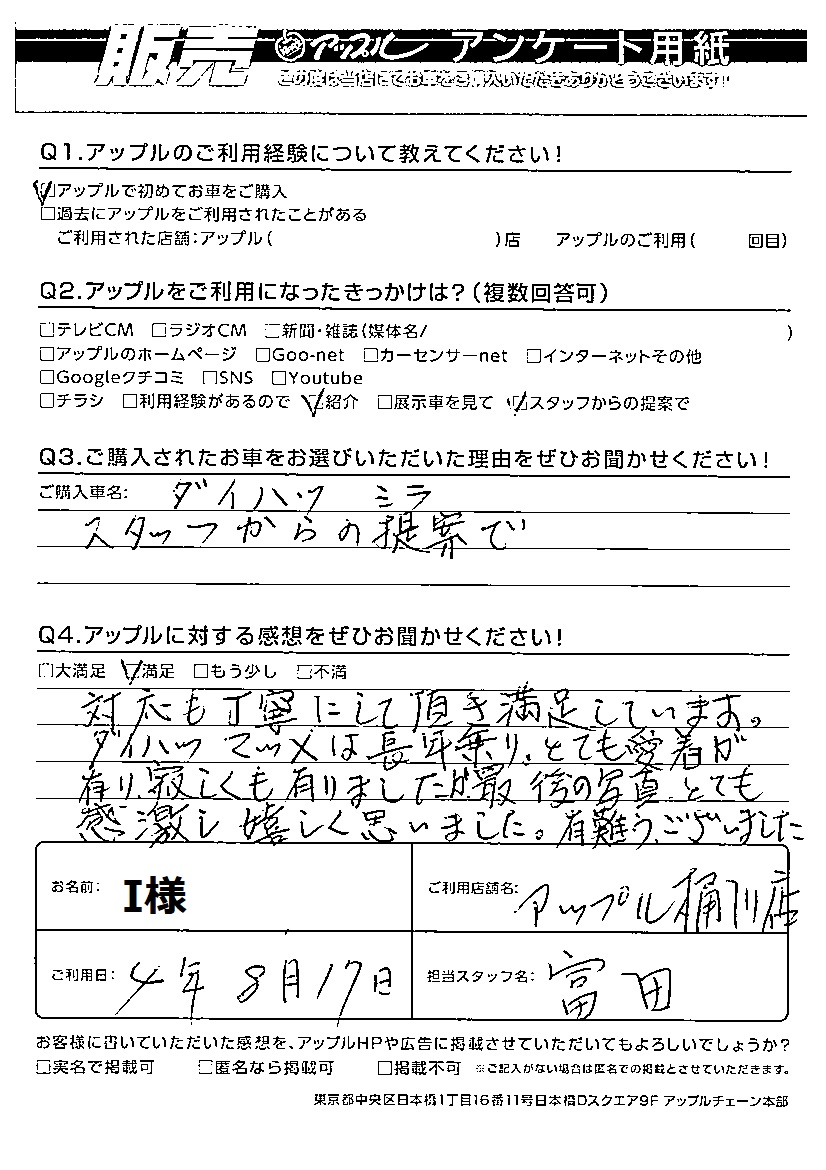 販売 アップル アンケート用紙
この度は当店にてお車をご購入いただきありがとうございます!!
Q1.アップルのご利用経験について教えてください!
☑アップルで初めてお車をご購入
□過去にアップルをご利用されたことがある
ご利用された店舗:アップル( )店 アップルのご利用( 回目)
Q2.アップルをご利用になったきっかけは?(複数回答可)
□テレビCM □ラジオCM □新聞・雑誌(媒体名/ )
□アップルのホームページ □Goo-net □カーセンサーnet □インターネットその他
□Googleクチコミ □SNS □Youtube
□チラシ □利用経験があるので ☑紹介 □展示車を見て ☑スタッフからの提案で
Q3.ご購入されたお車をお選びいただいた理由をぜひお聞かせください!
ご購入車名: ダイハツ ミラ
スタッフからの提案で
Q4.アップルに対する感想をぜひお聞かせください!
□大満足 ☑満足 □もう少し □不満
対応も丁寧にして頂き満足しています。
ダイハツ マックスは長年乗り、とても愛着が
有り、寂しくも有りましたが、最後の写真、とても
感激し嬉しく思いました。有難うございました
お名前: I様 ご利用店舗名: アップル桶川店
ご利用日: 4年 8月17日 担当スタッフ名: 富田
お客様に書いていただいた感想を、アップルHPや広告に掲載させていただいてもよろしいでしょうか?
□実名で掲載可 □匿名なら掲載可 □掲載不可 ※ご記入がない場合は匿名での掲載とさせていただきます。
東京都中央区日本橋1丁目16番11号日本橋Dスクエア9F アップルチェーン本部